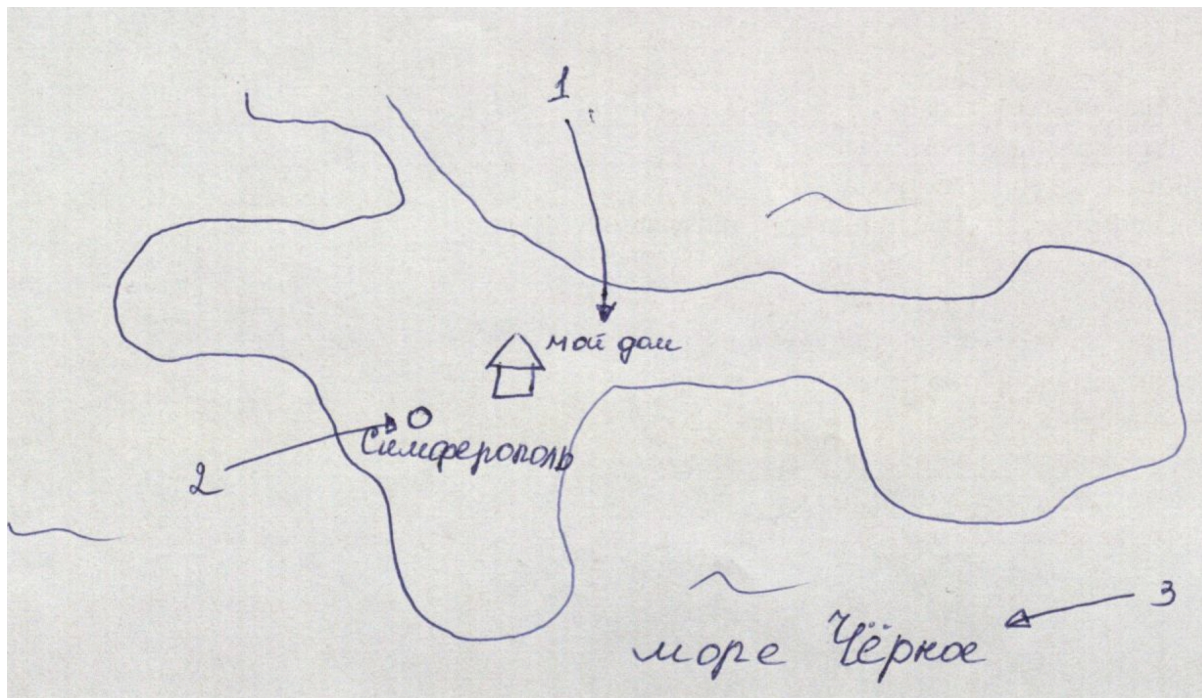 1
мой дом
Симферополь
2
3
море Чёрное